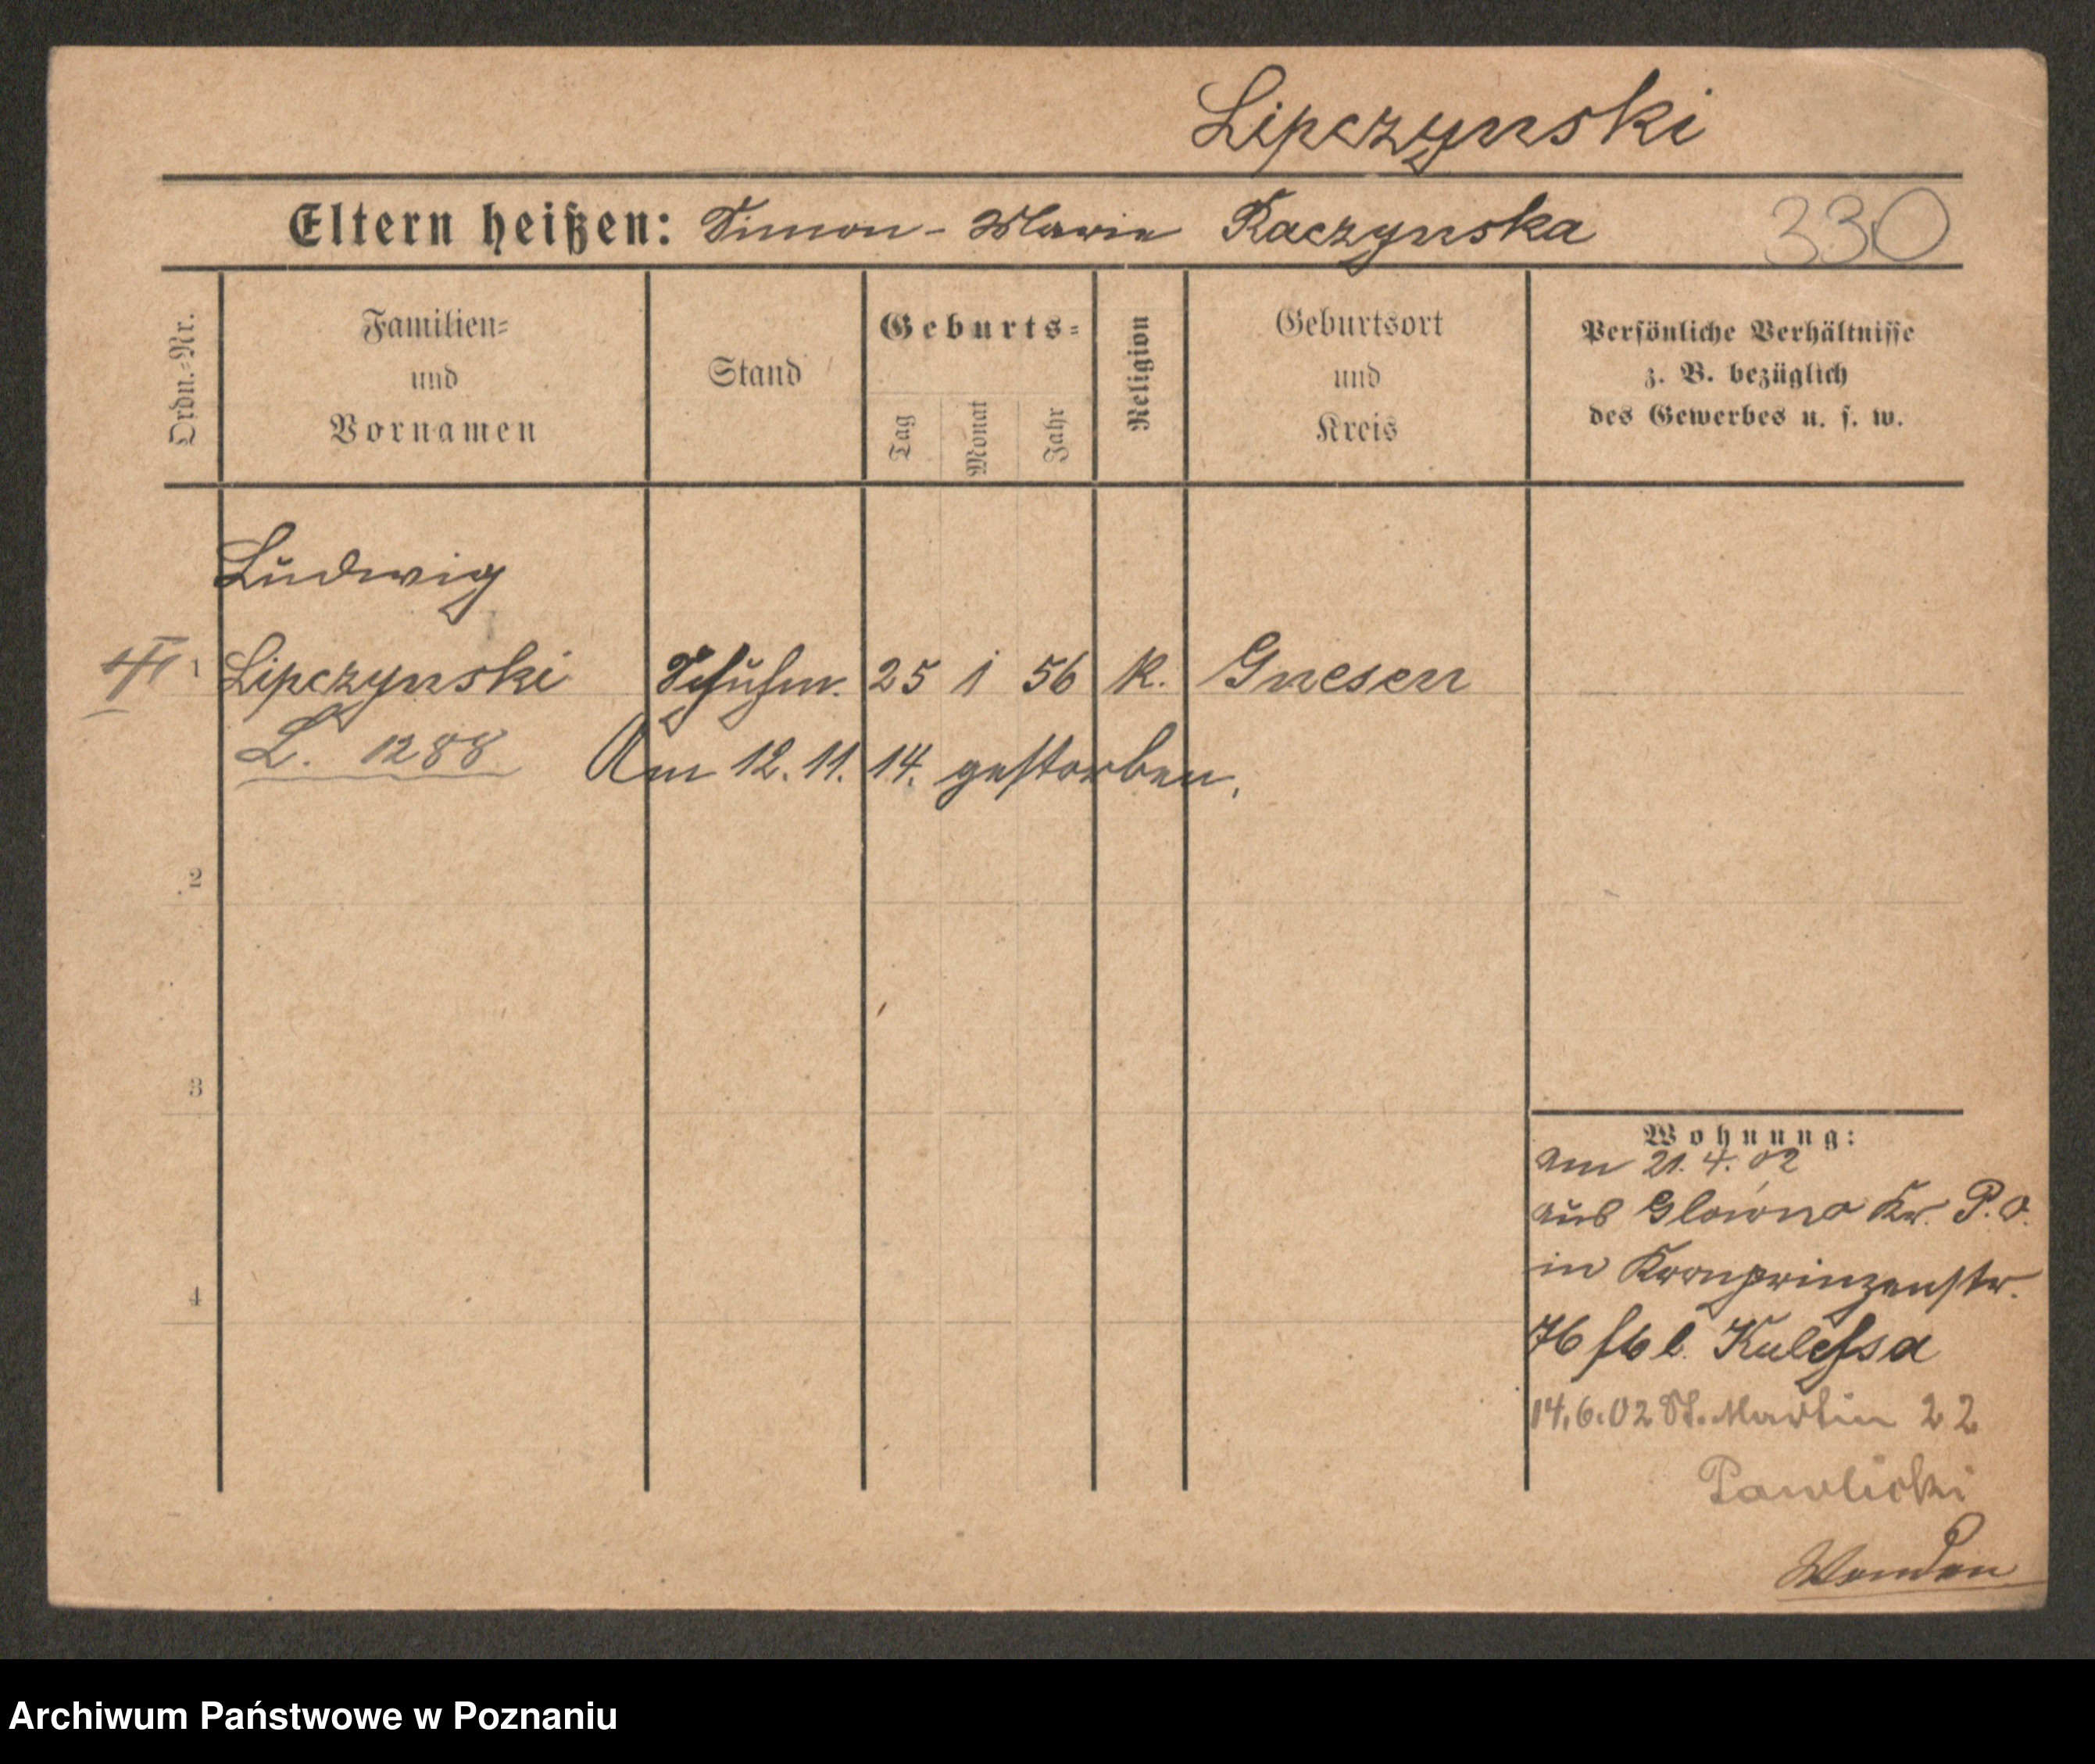 Lipczynski
Eltern heißen: Simon - Marie Raczynska 330
Ordn.-Nr.
Familien-
und
Vornamen
Stand
Geburts-
Tag
Monat
Jahr
Religion
Geburtsort
und
Kreis
Persönliche Verhältnisse
z. B. bezüglich
des Gewerbes u. s. w.
Ludwig
1 Lipczynski Schuhm. 25 1 56 k. Gnesen
L. 1288 Am 12. 11. 14. gestorben.
2
3
4
Wohnung:
am 21. 4. 02
aus Glowno Kr. P. O.
in Kronprinzenstr.
76 b.
14.6.02 St. Martin 22
Pawlicki
Wenden
Archiwum Państwowe w Poznaniu